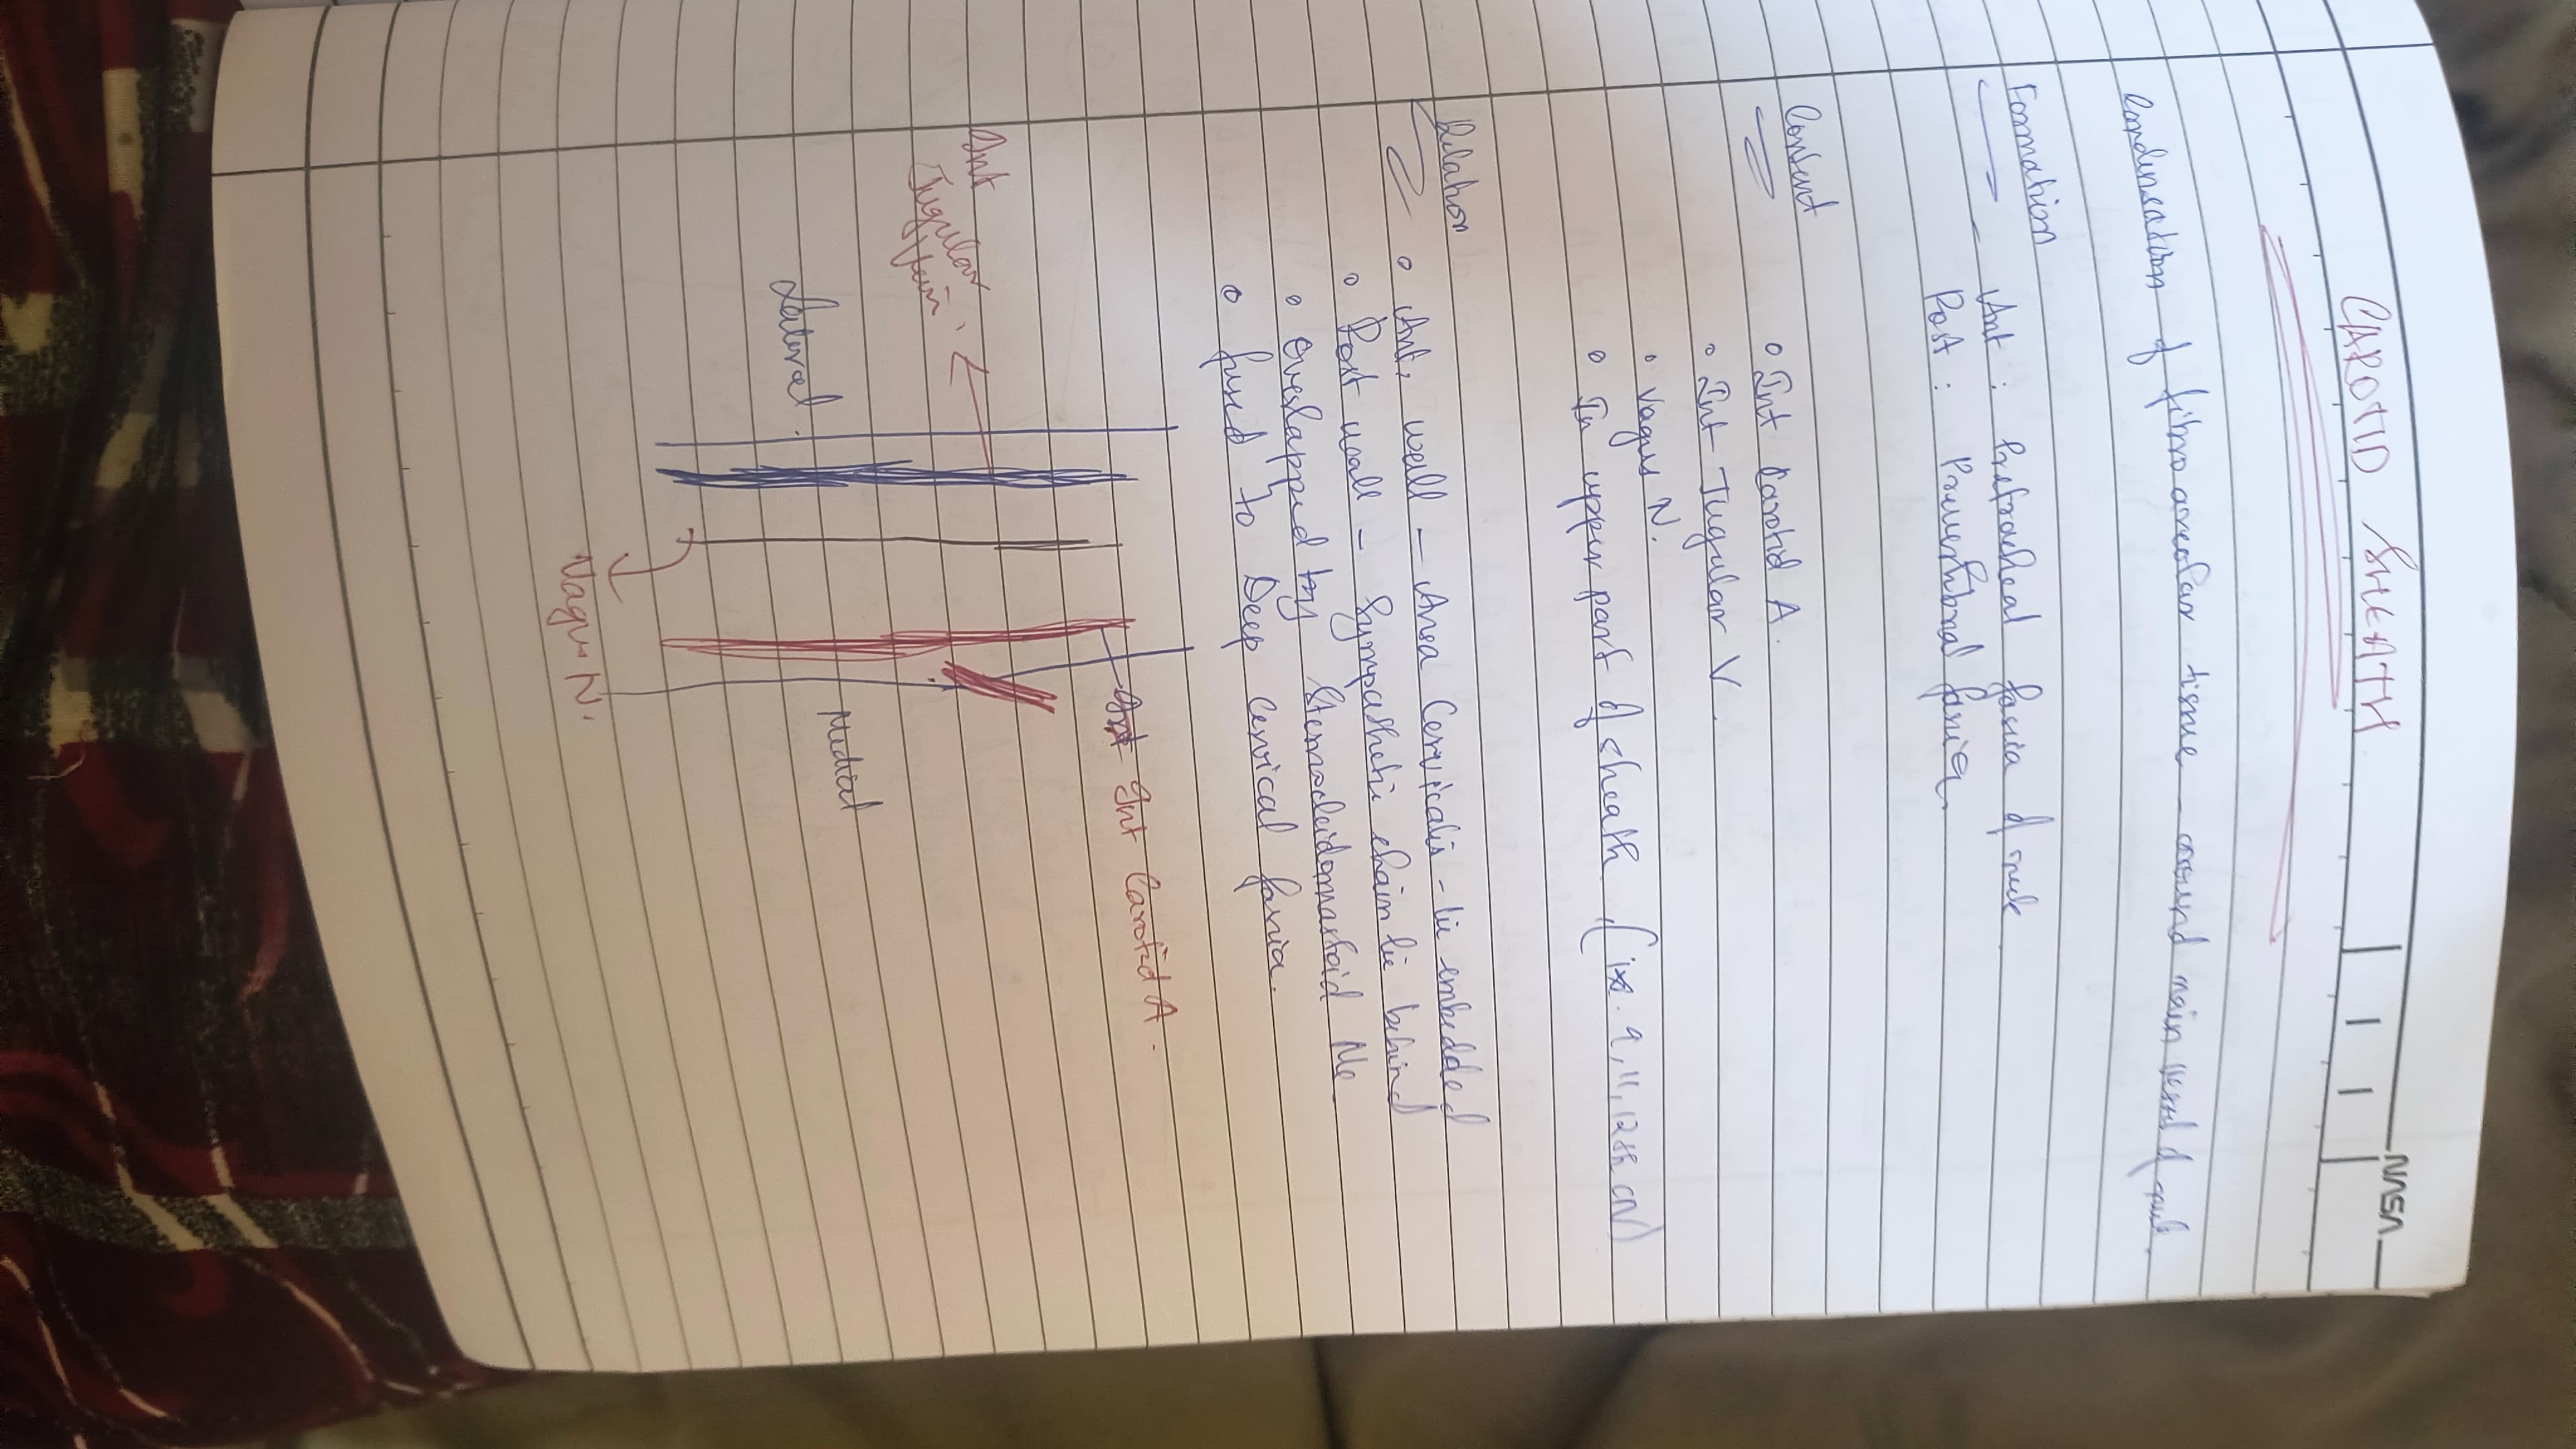 NASA
CAROTID SHEATH.
Condensation of fibro areolar tissue - around main vessel of neck.
Formation - Ant : Pretracheal fascia of neck
Post : Prevertebral fascia.
Content
o Int Carotid A.
o Int Jugular V.
o Vagus N.
o In upper part of sheath (ix. 9, 11, 12th CN)
Relation
o Ant. wall - Ansa Cervicalis - lie embedded
o Post wall - Sympathetic chain lie behind
o Overlapped by Sternocleidomastoid Ms
o fused to Deep cervical fascia.
Int Carotid A.
Int
Jugular
Vein.
Lateral.
Medial
Vagus N.